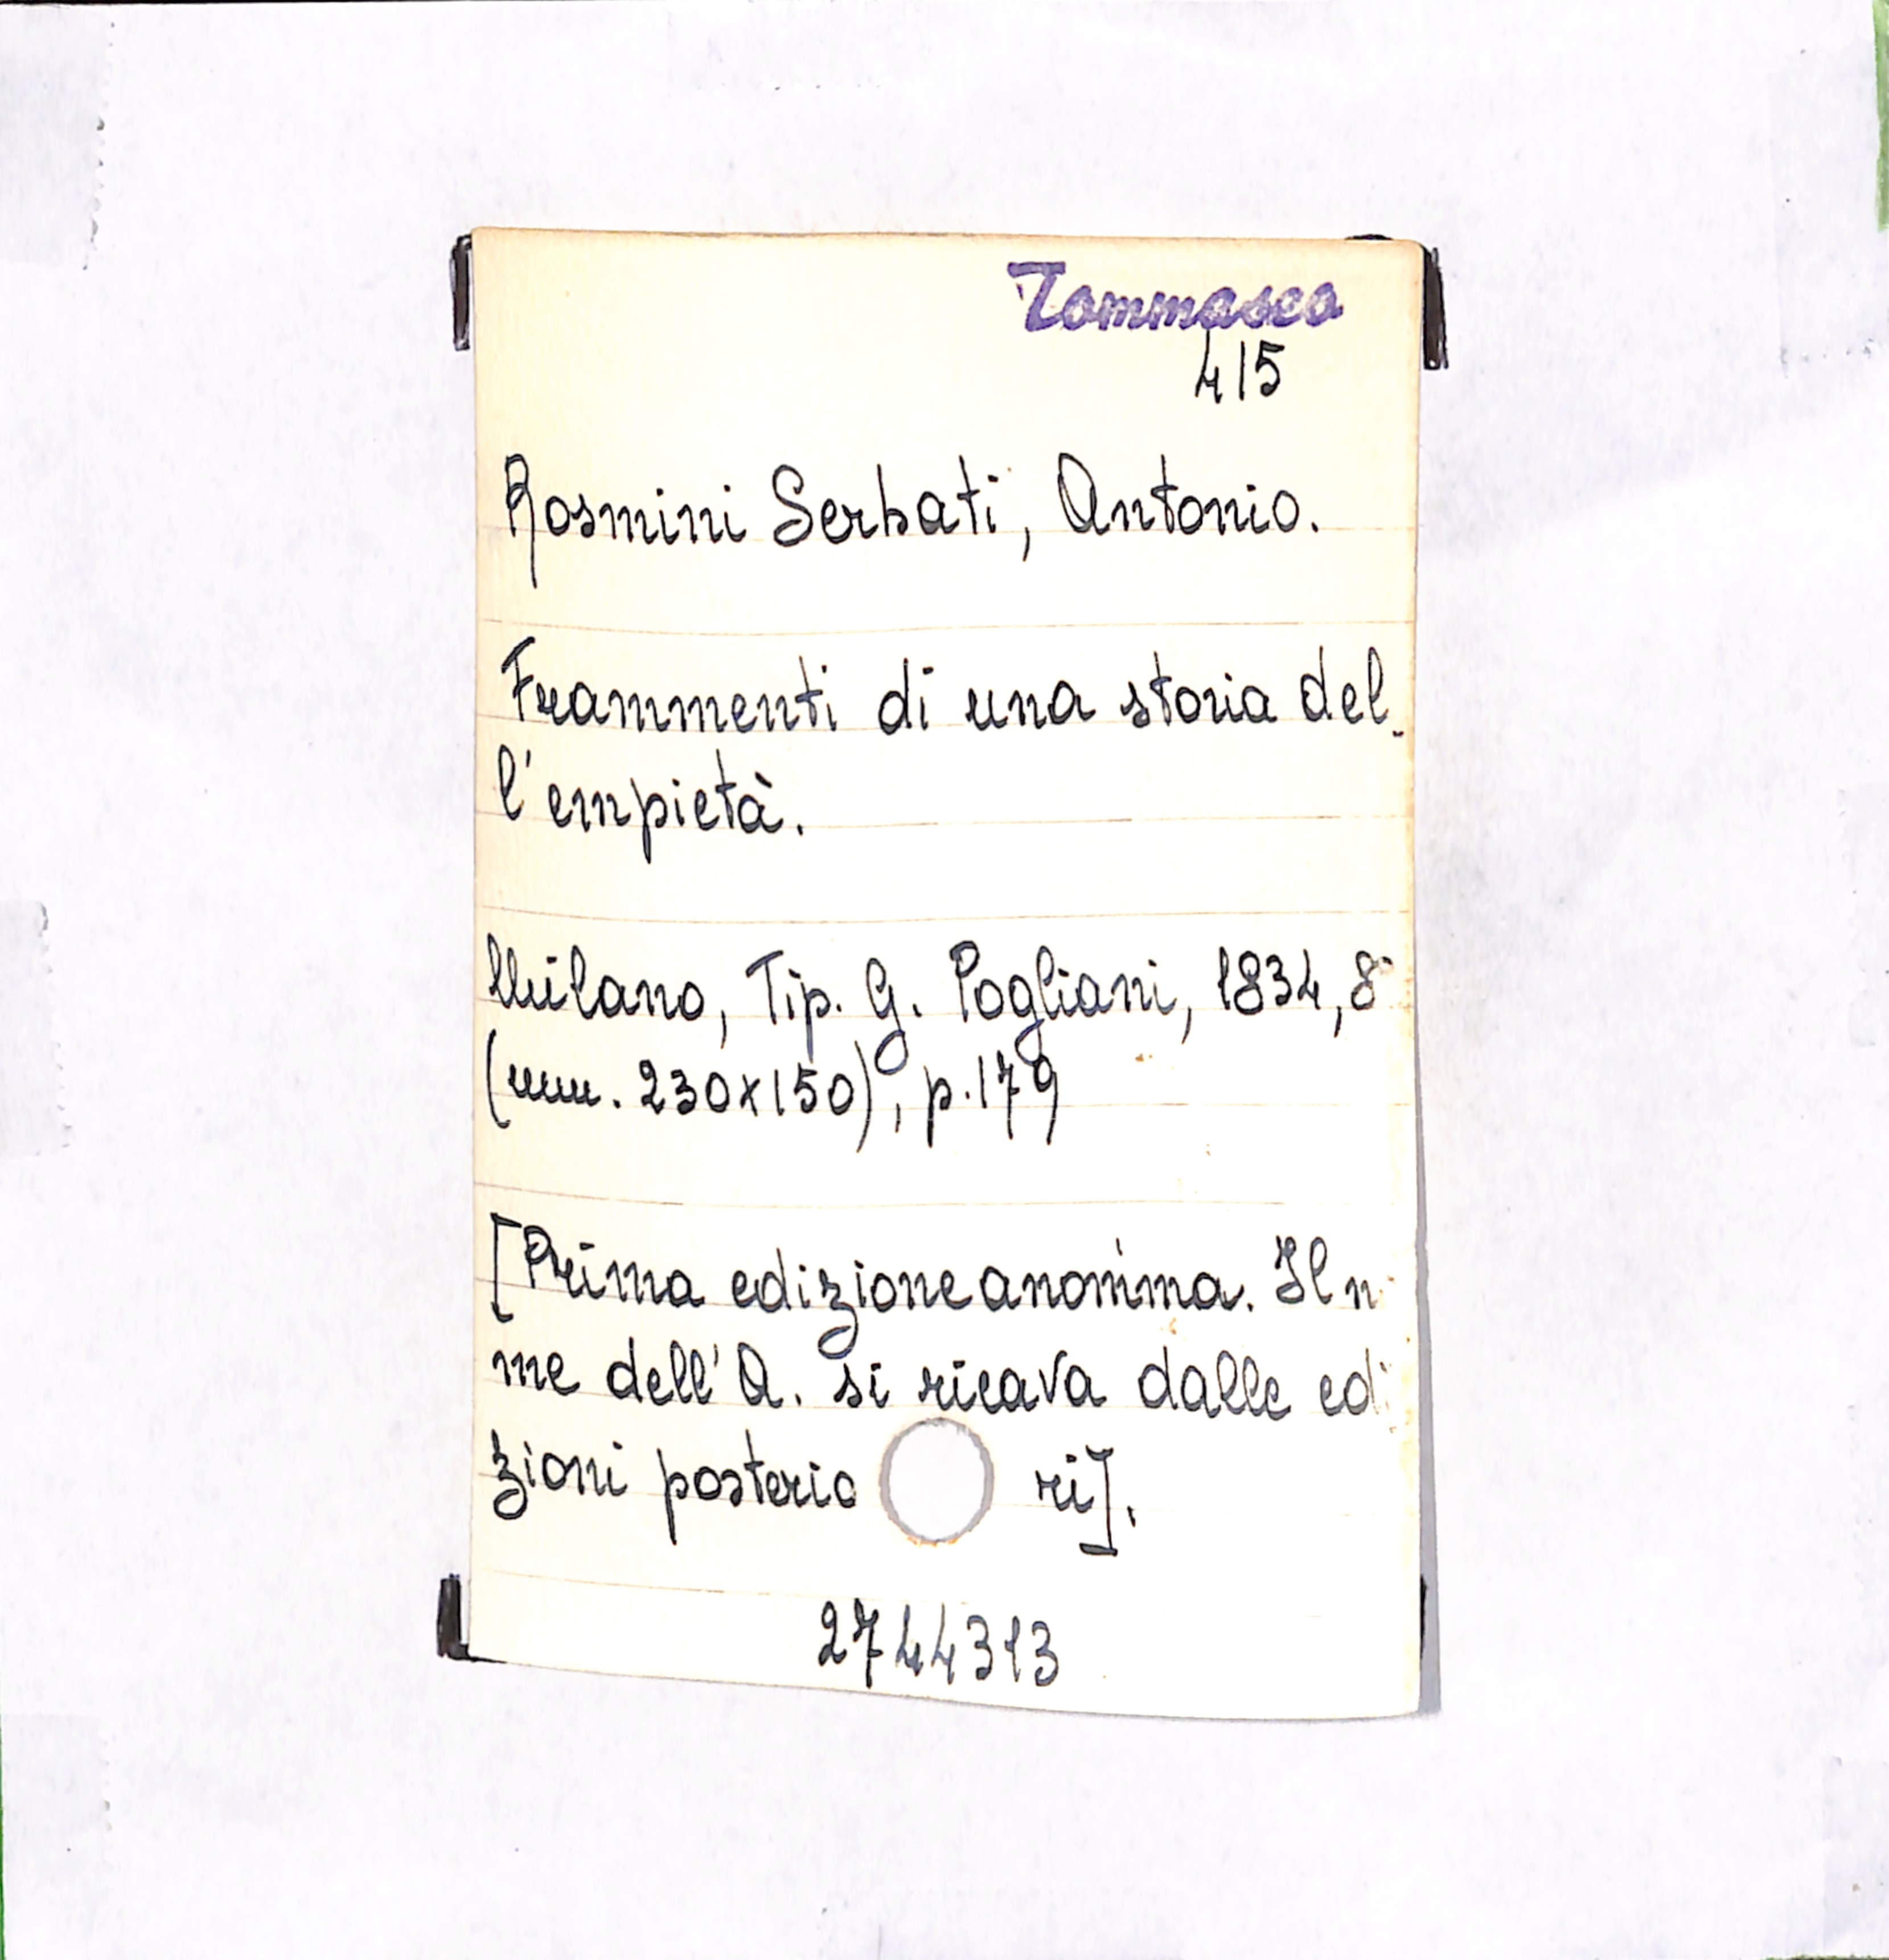 Tommaseo
415
Rosmini Serbati, Antonio.
Frammenti di una storia del-
l'empietà.
Milano, Tip. G. Pogliani, 1834, 8°
(mm. 230x150), p. 179
[Prima edizione anonima. Il n
me dell'A. si ricava dalle edi
zioni posterio ri].
2744313